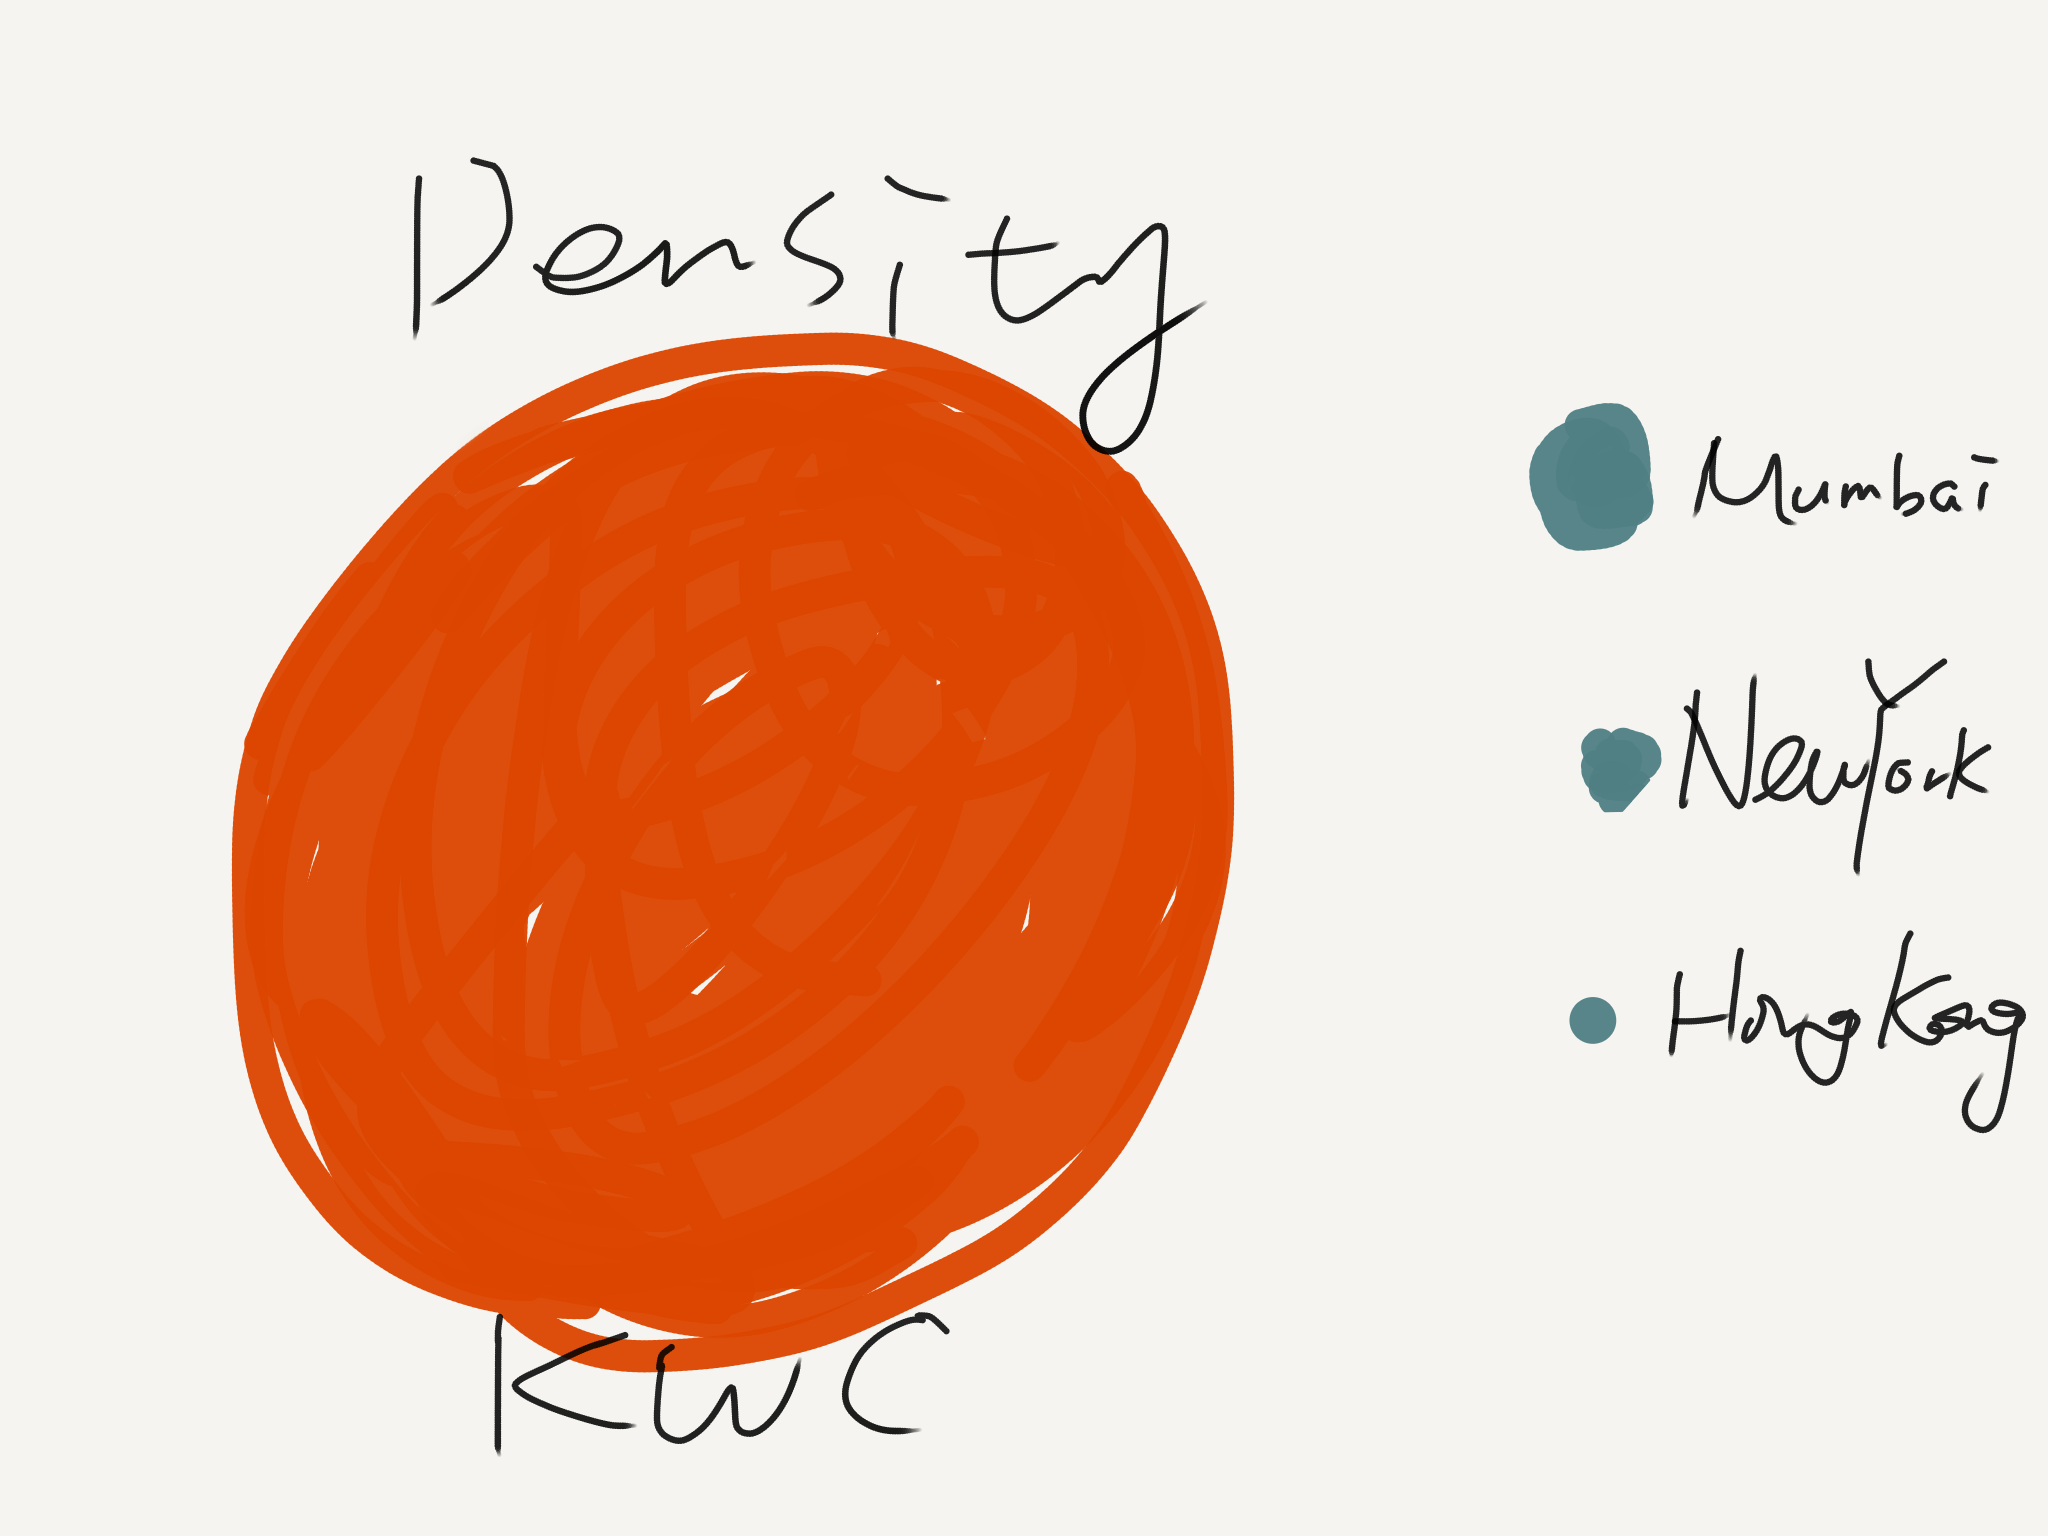 Density
KWC
Mumbai
New York
Hong Kong